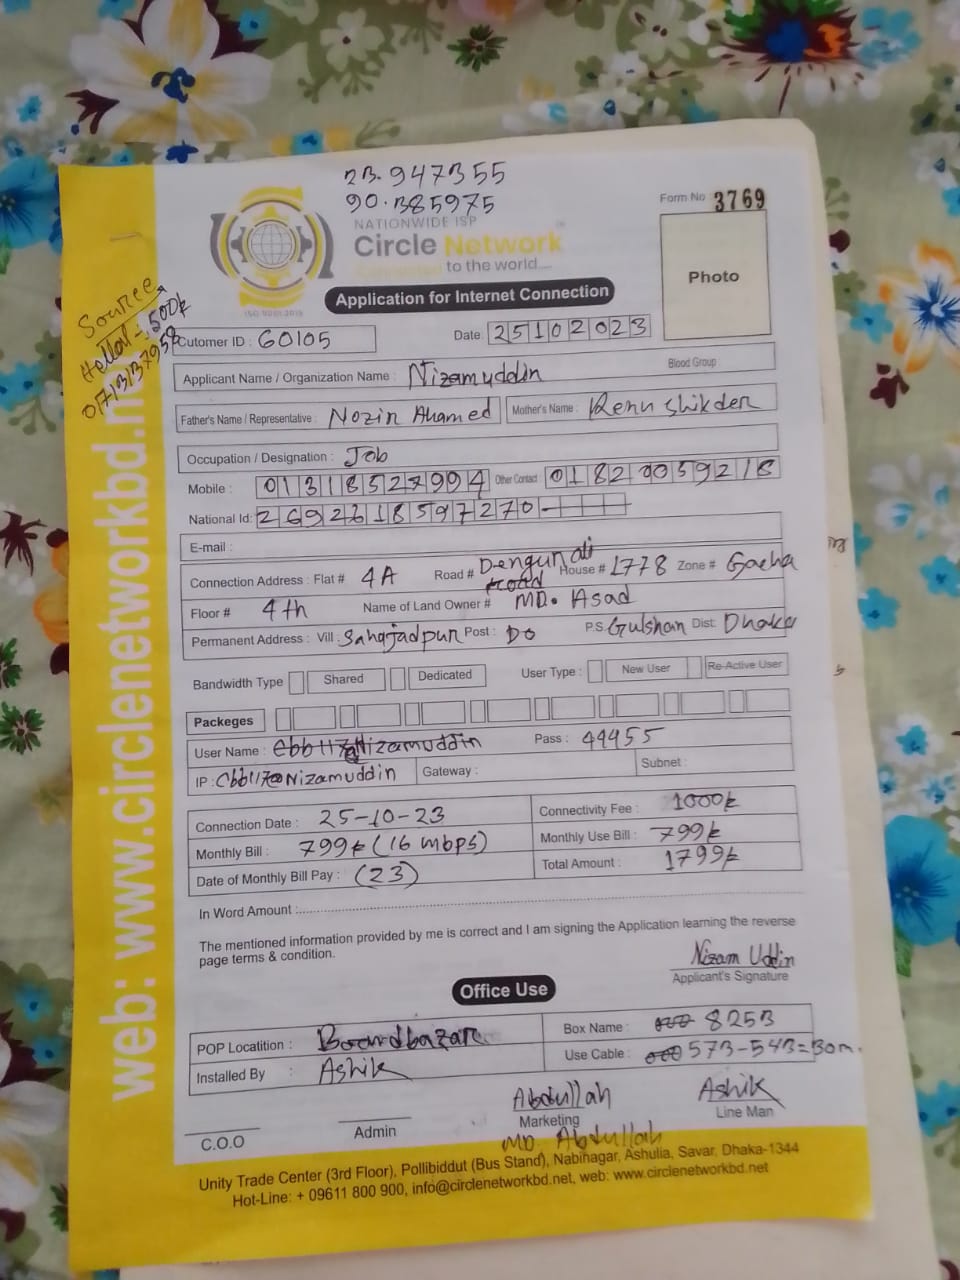 23.947355
90.385975
NATIONWIDE ISP
Circle Network
Connected to the world....
ISO 9001:2015
Form No : 3769
Photo
Application for Internet Connection
Source
Cutomer ID : 60105
Date: 25102023
Applicant Name / Organization Name : Nizamuddin
Blood Group :
Father's Name / Representative : Nozir Ahamed
Mother's Name : Renu Shikder
Occupation / Designation : Job
Mobile : 01318527994 Other Contact : 018200592
National Id: 2692618597270
E-mail :
Connection Address : Flat # 4A Road # Dengun ali road House # 1778 Zone # Gacha
Floor # 4th Name of Land Owner # MD. Asad
Permanent Address : Vill : Sahajadpur Post : DO P.S. Gulshan Dist: Dhaka
Bandwidth Type Shared Dedicated User Type : New User Re-Active User
Packeges
User Name : Cbb117@Nizamuddin Pass : 44455
IP : Cbb117@Nizamuddin Gateway : Subnet :
Connection Date : 25-10-23 Connectivity Fee : 1000৳
Monthly Bill : 799৳ (16 mbps) Monthly Use Bill : 799৳
Date of Monthly Bill Pay : (23) Total Amount : 1799৳
In Word Amount :
The mentioned information provided by me is correct and I am signing the Application learning the reverse
page terms & condition.
Nizam Uddin
Applicant's Signature
Office Use
POP Locatition : Boardbazar Box Name : 8253
Installed By : Ashik Use Cable : 573-543=30m.
Abdullah Ashik
C.O.O Admin Marketing Line Man
MD. Abdullah
Unity Trade Center (3rd Floor), Pollibiddut (Bus Stand), Nabinagar, Ashulia, Savar, Dhaka-1344
Hot-Line: + 09611 800 900, info@circlenetworkbd.net, web: www.circlenetworkbd.net
web: www.circlenetworkbd.net